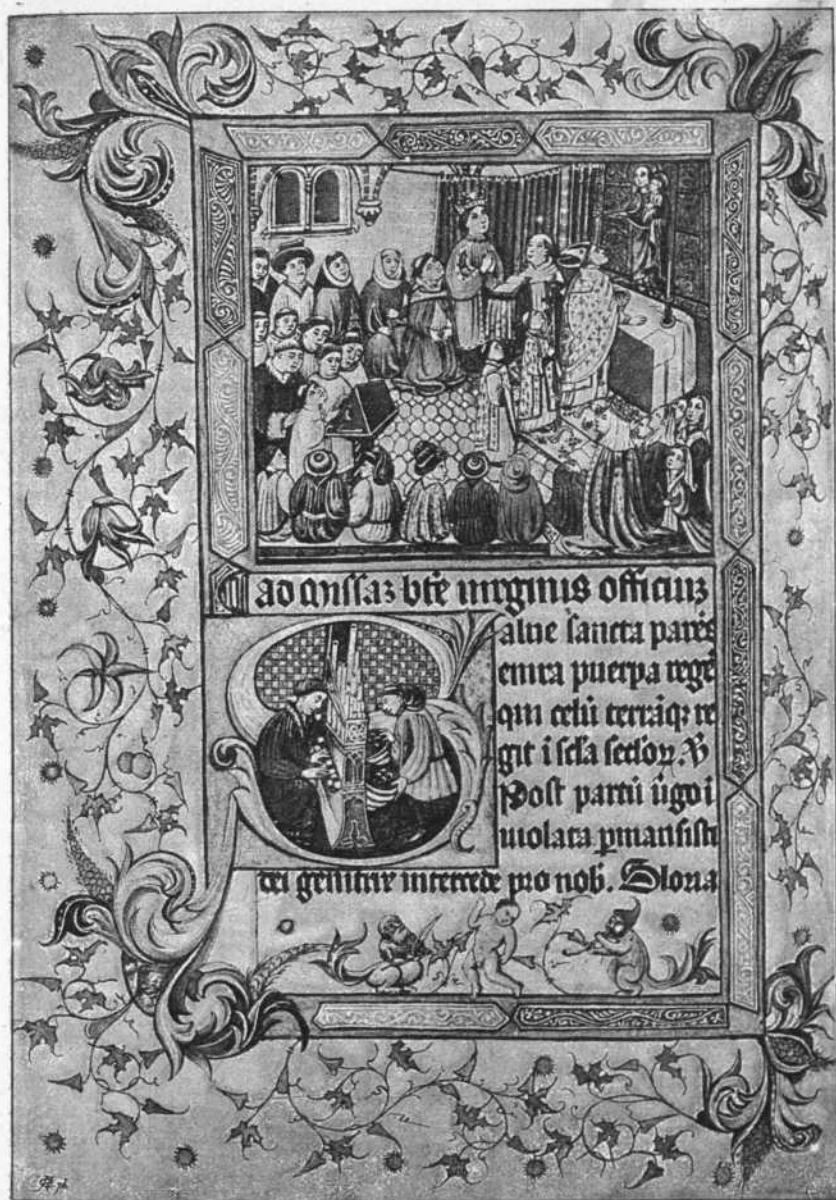 ad missaz bt̄e virginis officiuz
Salue sancta parēs
enixa puerpa regē
qui celū terrāqȝ re
git ī scl̄a secl̄oꝝ. ℣
Post partū v̄go ī
uiolata ꝑmansisti
dei genitrix intercede pro nob̄. Gloria